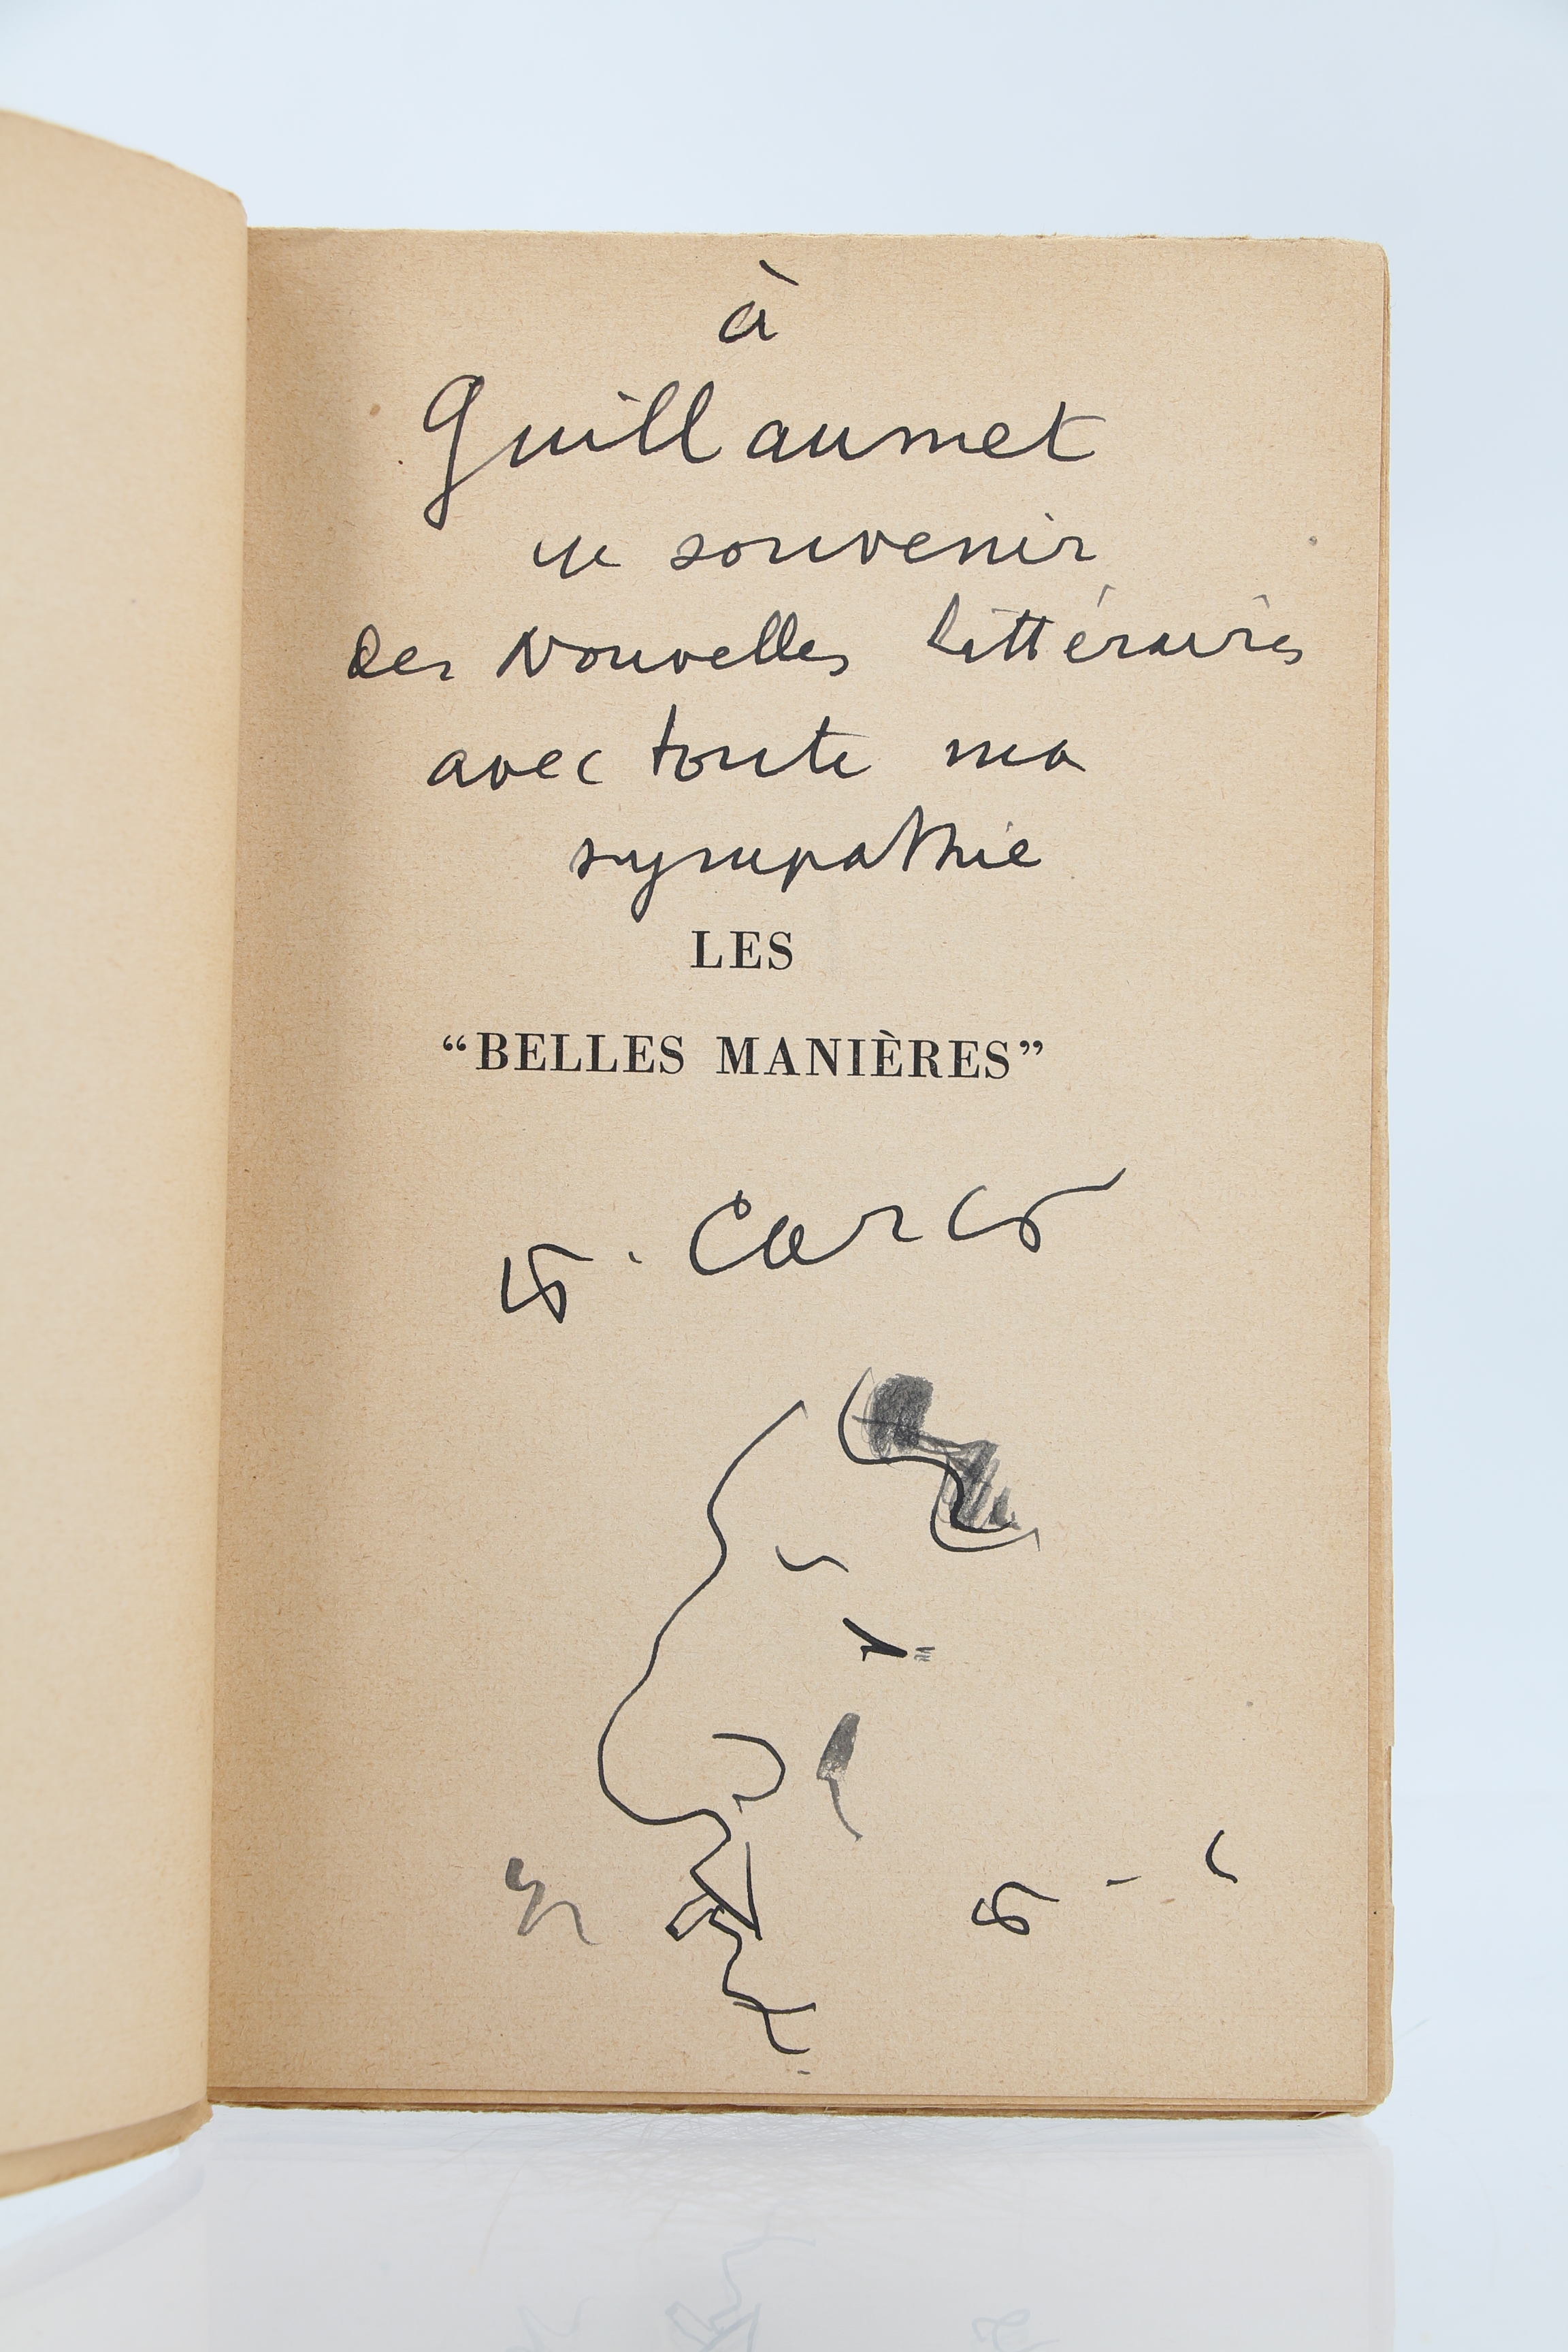 à
Guillaumet
ce souvenir
des Nouvelles littéraires
avec toute ma
sympathie
LES
“BELLES MANIÈRES”
F. Carco
F. C